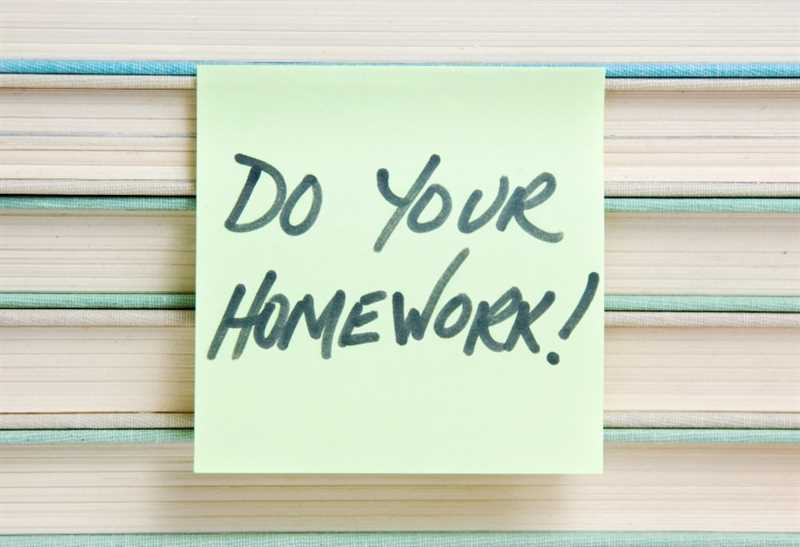 DO YOUR
HOMEWORK!